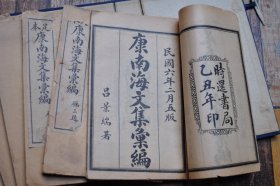 民國六年二月五版
康南海文集彙編
呂景端著
乙丑年印
時還書局
足本
康南海文集彙編
康南海文集彙編